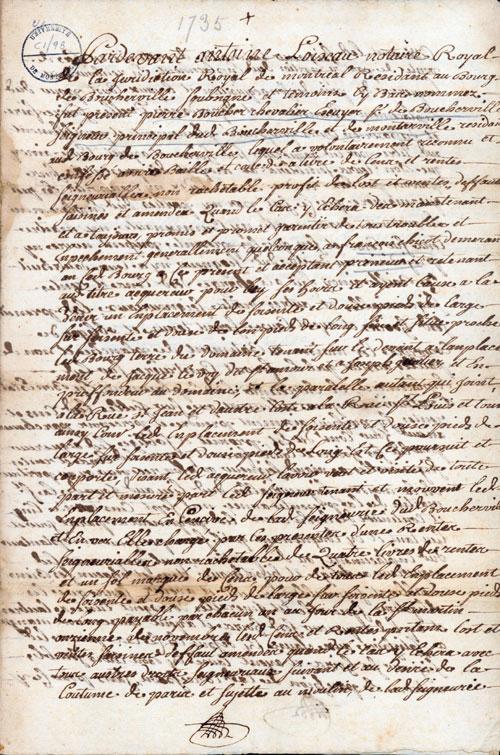 1735
UNIVERSITÉ
Pardevant antoine Loiseau notaire Royal
de la Juridiction Royal de montreal Residant au Bourg
de Boucherville soubsigné et temoins Cy Bas nommez
fut present pierre Boucher chevalier Ecuyer Sr de Boucherville
Seigneur principal dud Boucherville et de montarville residan
aud Bourg de Boucherville lequel a volontairement reconnu et
Confesse avoir Baillé et cedé a titre de Cens et rentes
Seigneurialles non rachetable profit de lost et ventes deffaut
saisines et amendes Quand le Cas y Echera des maintenant
et a toujours promis et promet garantir de tous troubles et
Empechement generallement quelconques a demeurant
aud Bourg a Ce present et acceptant preneur et retenant
aud titre acquereur pour luy ses hoirs et ayant Cause a la
un Emplacement de soixante et douze pieds de large
sur soixante et douze de long
le Bourg terre du domaine tenant sur le devant a lemplace
ment de Jacques et Joseph
du domaine, et la paralelle
Rue St Jean et dautre Coté a la Rue St Louis et tout
ainsy Led Emplacement de soixante et douze pieds de
large sur soixante et douze pieds de Long Et Ce poursuit et
comporte disant led acquereur lavoir veu et visité de toute
part et mouvant dud Seigneur tenant et mouvent led
Emplacement En Censive de lad Seigneurie dud Boucherville
et En vers Elle charge par Ces presentes dune Rentes
Seigneurialles non rachetables de Quatre livres de rentes
et un sol marqué de Cens pour tout led Emplacement
de soixante et douze pieds de large sur soixante et douze pieds
de long payable par chacun an au Jour de la St martin
onzieme de novembre led Cens et Rentes portant lost et
ventes saisines deffaut amendes quand le Cas y Echera avec
tous autres droits Seigneuriaux suivant et au desir de la
Coutume de paris et sujette au moulin de lad Seigneurie